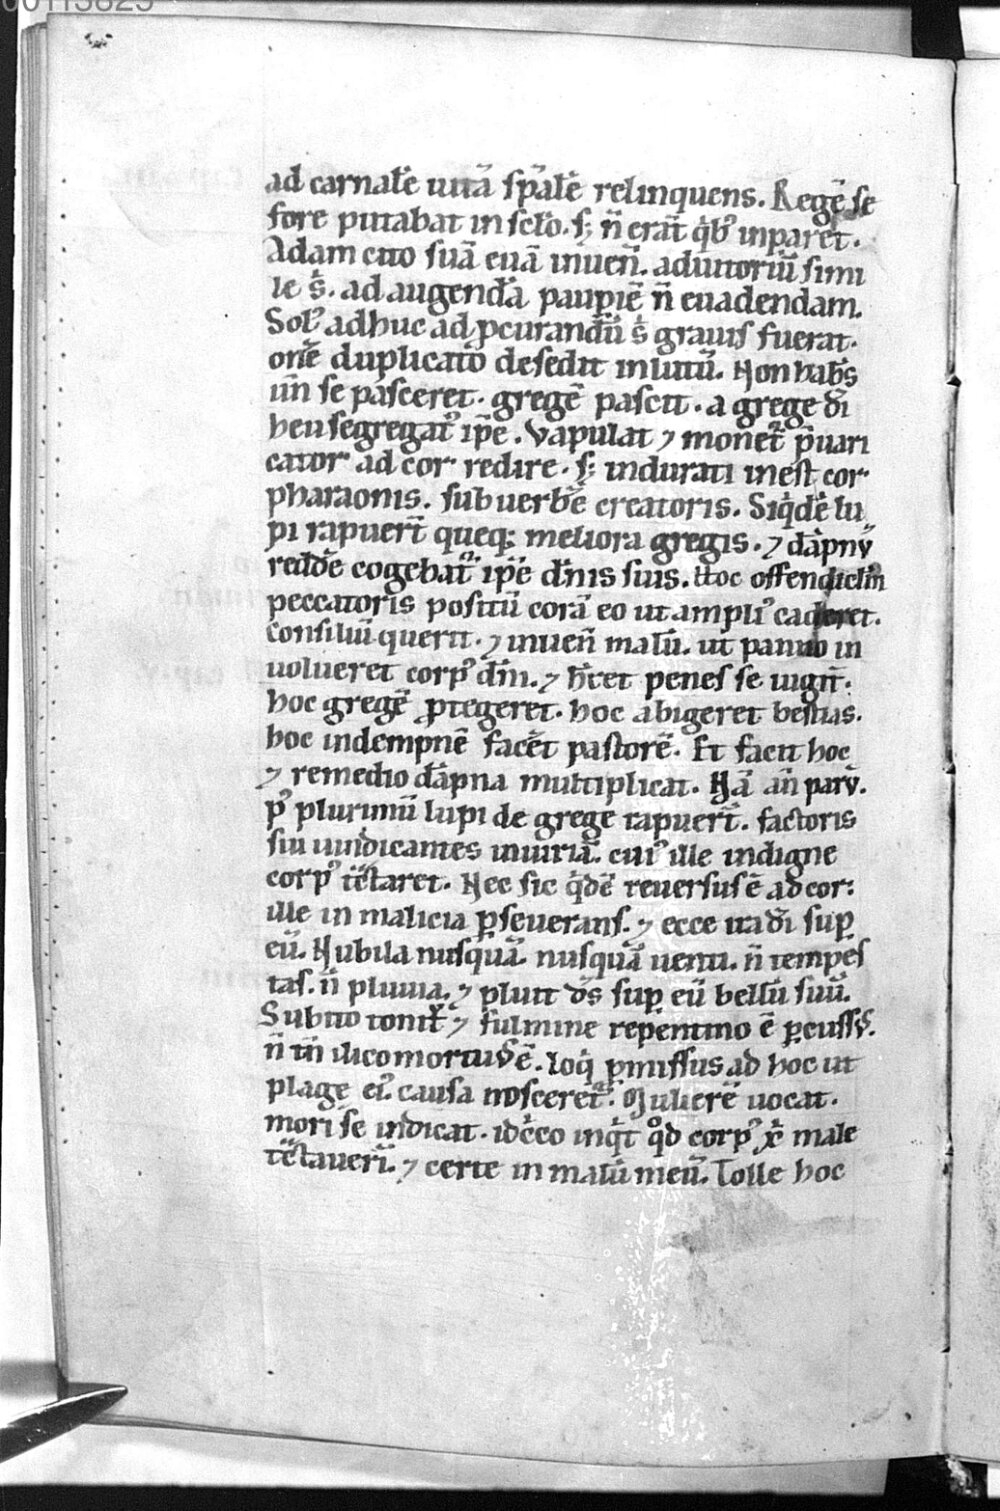 00113825
ad carnalē uitā sp̄alē relinquens. Regē se
fore putabat in sclo. sꝫ n̄ erāt qͥbꝰ inparet.
Adam cito suā euā inuen̄. adiutoriū simi
le sͥ. ad augendā paupiē n̄ euadendam.
Solꝰ adhuc ad ꝓcurandū sͥ grauis fuerat.
on̄e duplicato desedit in lutū. Non hab̄s
un̄ se pasceret. gregē pascit. a grege dī
heu segregatꝰ ip̄e. Vapulat ⁊ monet᷑ p̄uari
cator ad cor redire. sꝫ indurati inest cor
pharaonis. sub uerbē creatoris. Siqͥdē lu
pi rapuerт̄ queqꝫ meliora gregis. ⁊ dāpnū
redde᷑ cogebat᷑ ip̄e dn̄is suis. Hoc offendiclm̄
peccatoris positū corā eo ut ampliꝰ caderet.
Consiliū querit. ⁊ inuen̄ malū. ut panno in
uolueret corpꝰ dn̄i. ⁊ hr̄et penes se iugit᷑.
hoc gregē ꝓtegeret. hoc abigeret bestias.
hoc indempnē facēt pastorē. Et facit hoc
⁊ remedio dāpna multiplicat. Nā an̄ parū.
pꝰ plurimū lupi de grege rapuerт̄. factoris
sui uindicantes iniuriā. cuiꝰ ille indigne
corpꝰ t᷑ctaret. Nec sic qͥdē reuersus ē ad cor:
ille in malicia ꝑseuerans. ⁊ ecce ira dī suꝑ
eū. Nubila nusquā. nusquā uenti. n̄ tempes
tas. n̄ pluuia. ⁊ pluit ds̄ suꝑ eū bellū suū.
Subito tonit᷑ ⁊ fulmine repentino ē ꝑcussꝰ.
n̄ tn̄ ilico mortuꝰ ē. loqͥ ꝑmissus ad hoc ut
plage eiꝰ causa nosceret᷑. Mulierē uocat.
mori se indicat. idc̄co inqͥt qͦd corpꝰ xͥ male
t᷑ctauerī. ⁊ certe in malū meū. Tolle hoc